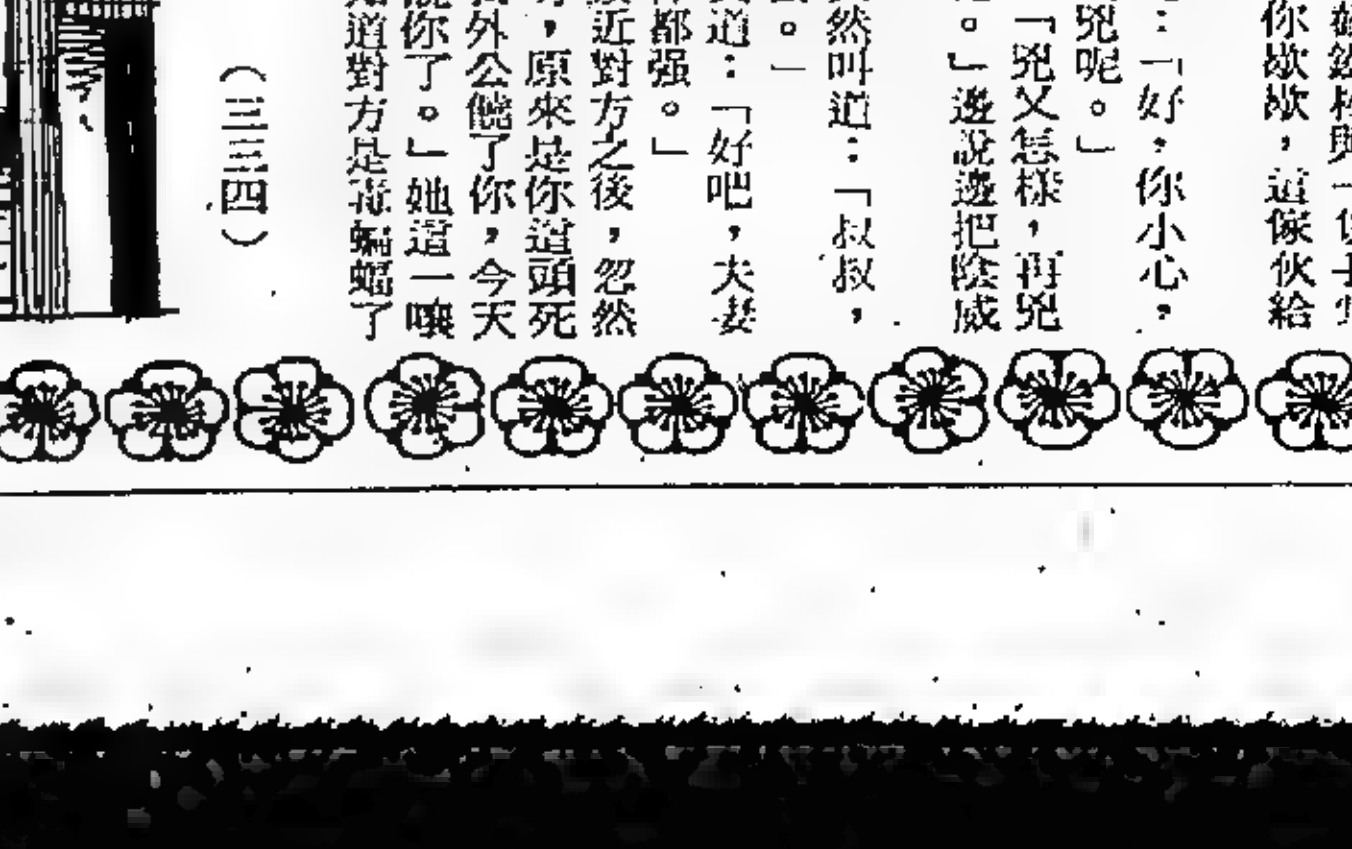 與一
你歇歇，這傢伙給
：「好，你小心，
兇呢。」
「兇又怎樣，再兇
。」邊說邊把陰威
然叫道：「叔叔，
。」
道：「好吧，夫妻
都强。」
近對方之後，忽然
，原來是你這頭死
外公饒了你，今天
你了。」她這一嚷
道對方是毒蝙蝠了
（三三四）